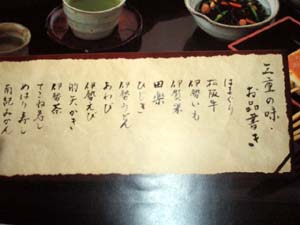 三重の味・
お品書き
はまぐり
松阪牛
伊勢いも
伊賀米
田楽
ひじき
伊勢うどん
あわび
伊勢えび
的矢かき
伊勢茶
てこね寿し
めはり寿し
南紀みかん